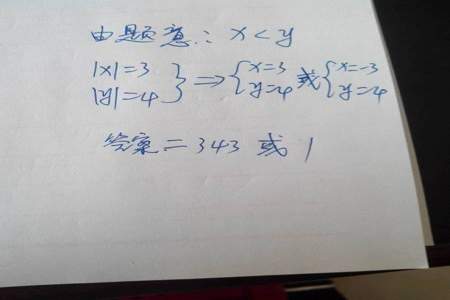 由题意: x<y
|x|=3
|y|=4 } ⇒ { x=3 y=4 或 { x=-3 y=4
答案=343 或 1